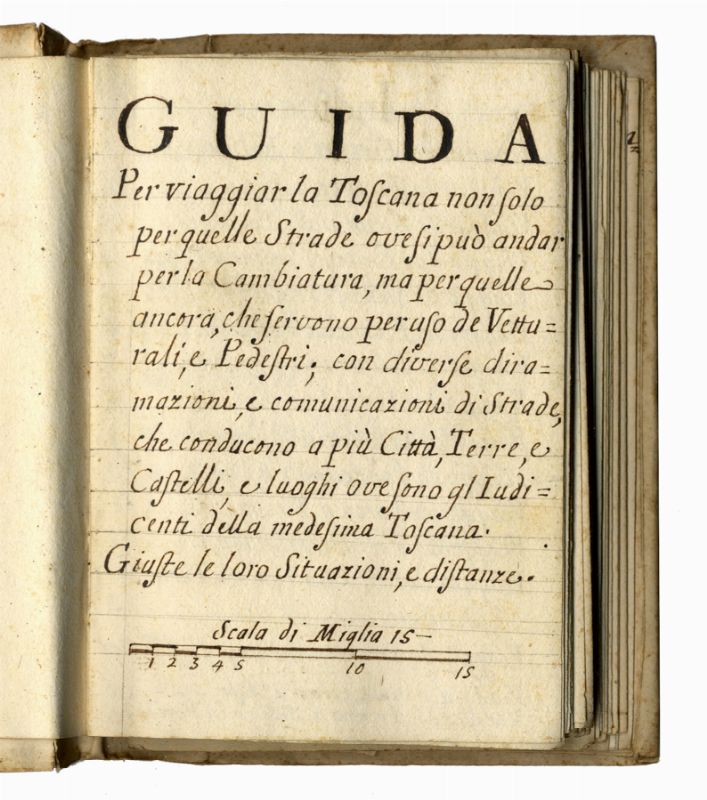 GUIDA
Per viaggiar la Toſcana non ſolo
per quelle Strade ove ſi può andar
per la Cambiatura, ma per quelle
ancora, che ſervono per uſo de Vettu=
rali, e Pedeſtri; con diverſe dira=
mazioni, e comunicazioni di Strade,
che conducono a più Città, Terre, e
Caſtelli, e luoghi ove ſono gl Iudi=
centi della medeſima Toſcana.
Giuſte le loro Situazioni, e diſtanze.
Scala di Miglia 15—
1 2 3 4 5 10 15